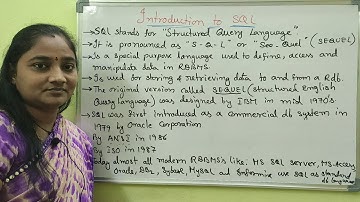 Introduction to SQL
→ SQL stands for "Structured Query Language"
→ It is pronounced as "S-Q-L" or "See-Quel" (SEQUEL)
→ Is a special purpose language used to define, access and
manipulate data in RDBMS
→ Is used for storing & retrieving data to and from a Rdb.
→ The original version called SEQUEL (Structured English
Query language) was designed by IBM in mid 1970's
→ SQL was first introduced as a commercial db system in
1979 by Oracle Corporation
By ANSI in 1986
By ISO in 1987
Today almost all modern RDBMS's like: MS SQL Server, MS-Access
Oracle, DB2, Sybase, MySQL and Informix use SQL as standard
db language